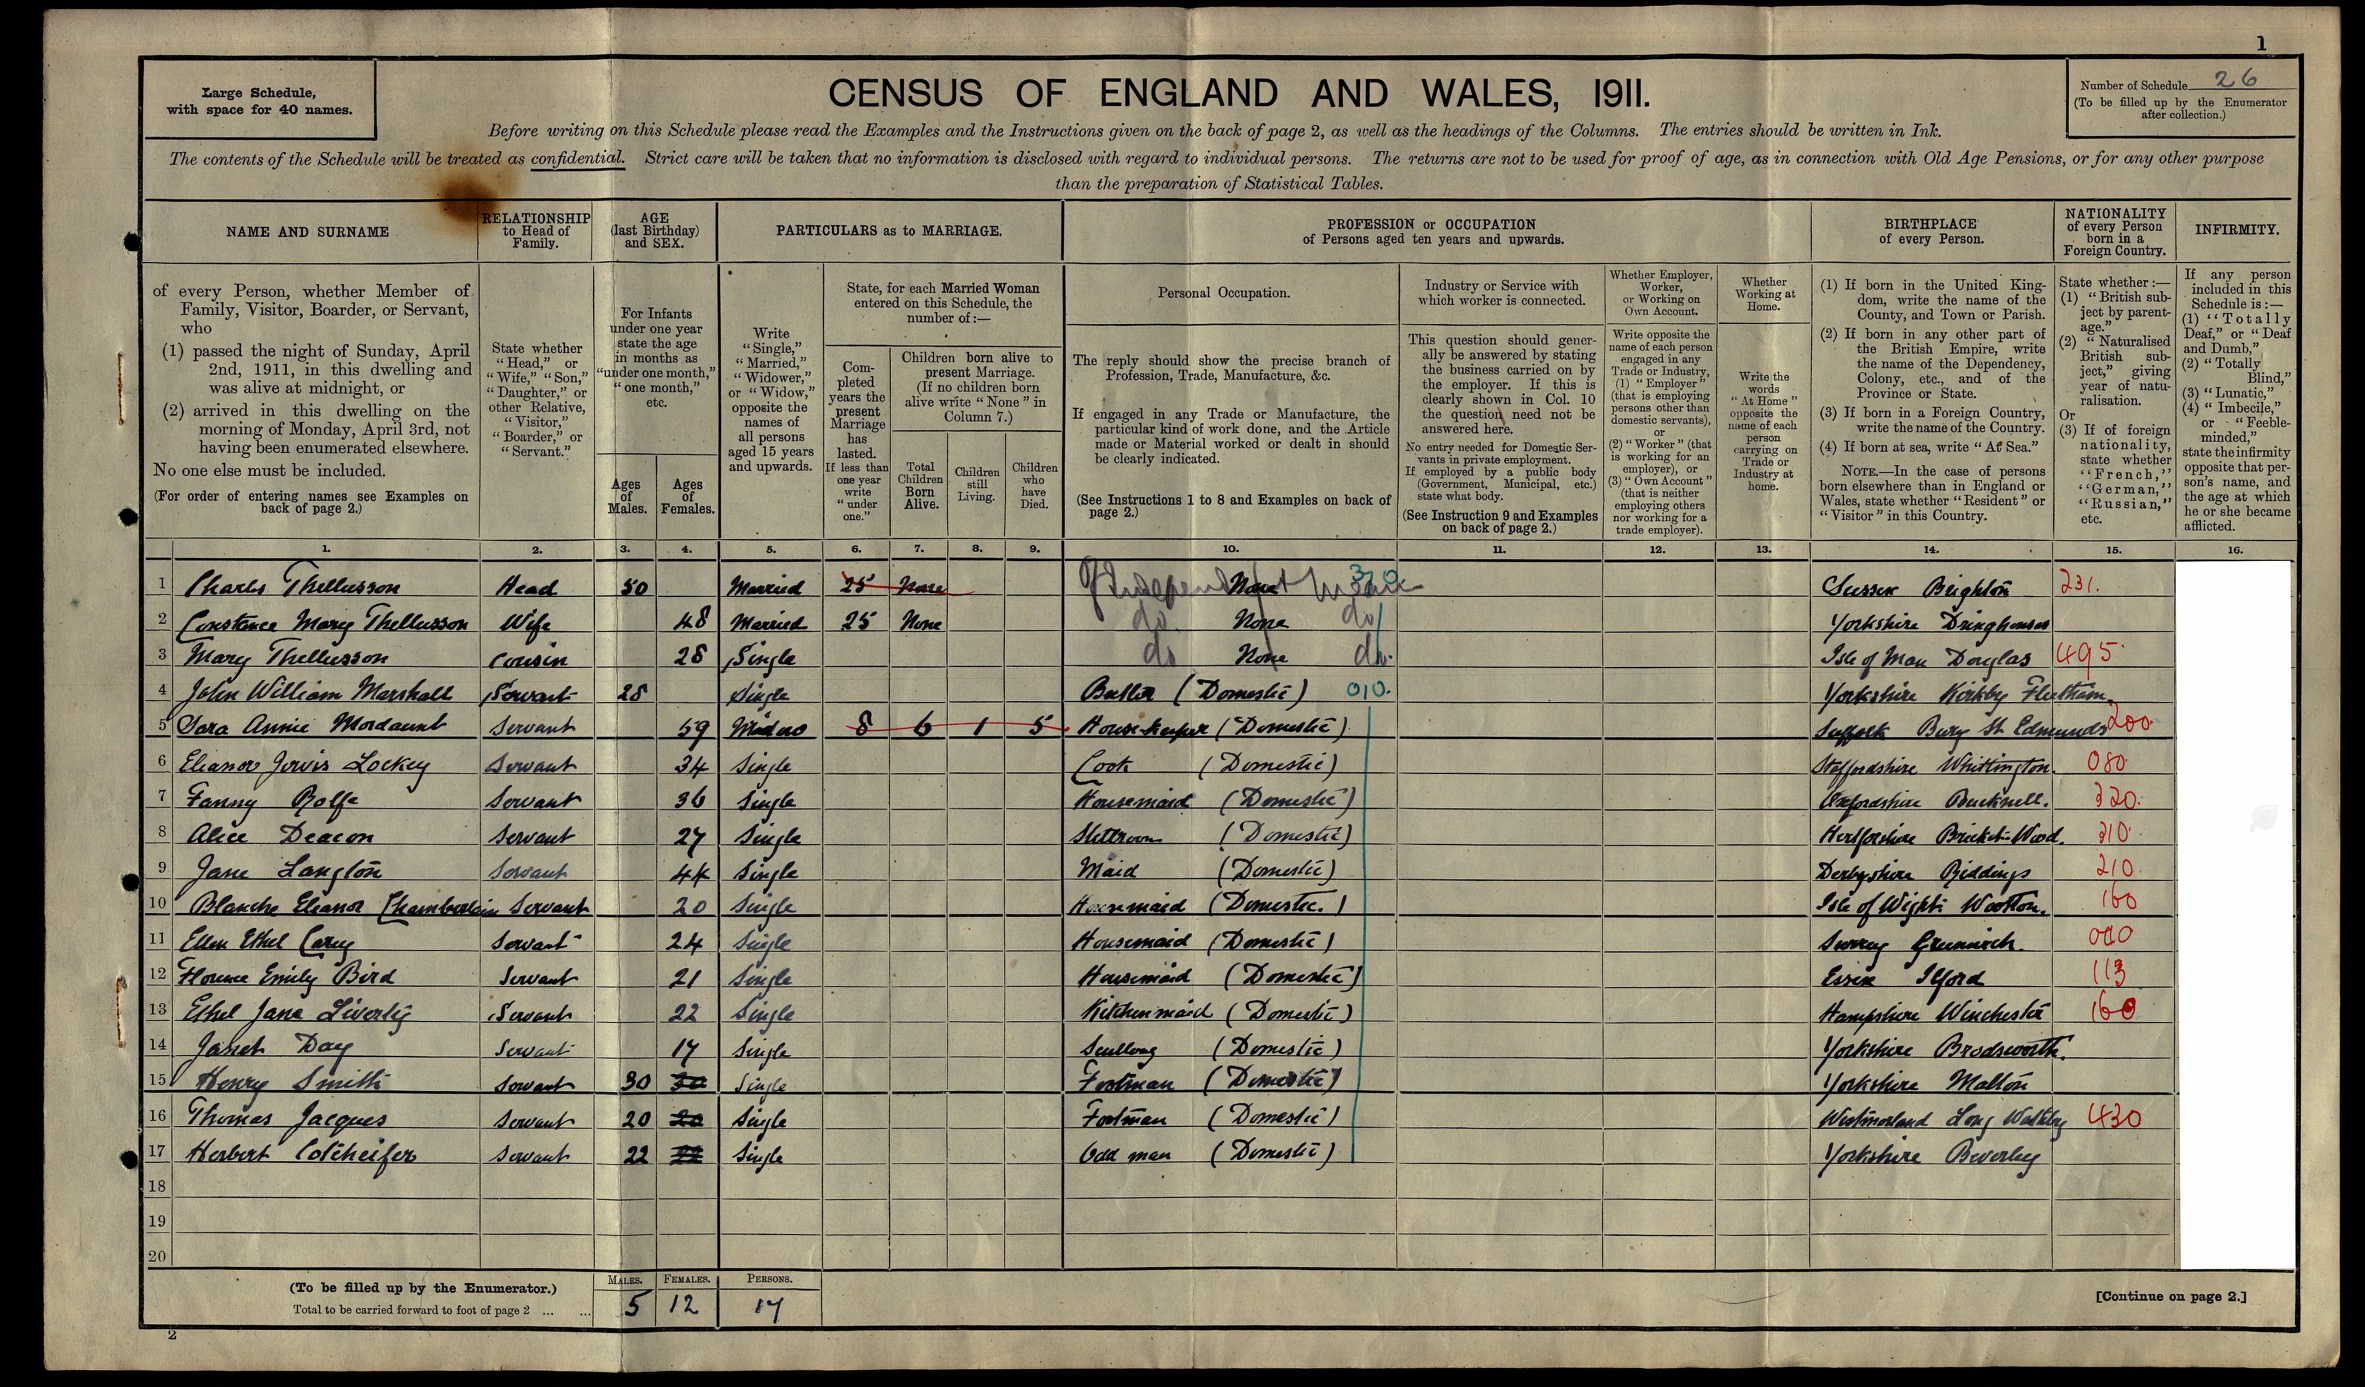 1
Large Schedule,
with space for 40 names.
CENSUS OF ENGLAND AND WALES, 1911.
Number of Schedule 26
(To be filled up by the Enumerator
after collection.)
Before writing on this Schedule please read the Examples and the Instructions given on the back of page 2, as well as the headings of the Columns. The entries should be written in Ink.
The contents of the Schedule will be treated as confidential. Strict care will be taken that no information is disclosed with regard to individual persons. The returns are not to be used for proof of age, as in connection with Old Age Pensions, or for any other purpose
than the preparation of Statistical Tables.
NAME AND SURNAME
of every Person, whether Member of
Family, Visitor, Boarder, or Servant,
who
(1) passed the night of Sunday, April
2nd, 1911, in this dwelling and
was alive at midnight, or
(2) arrived in this dwelling on the
morning of Monday, April 3rd, not
having been enumerated elsewhere.
No one else must be included.
(For order of entering names see Examples on
back of page 2.)
RELATIONSHIP
to Head of
Family.
State whether
"Head," or
"Wife," "Son,"
"Daughter," or
other Relative,
"Visitor,"
"Boarder," or
"Servant."
AGE
(last Birthday)
and SEX.
For Infants
under one year
state the age
in months as
"under one month,"
"one month,"
etc.
Ages
of
Males.
Ages
of
Females.
PARTICULARS as to MARRIAGE.
Write
"Single,"
"Married,"
"Widower,"
or "Widow,"
opposite the
names of
all persons
aged 15 years
and upwards.
State, for each Married Woman
entered on this Schedule, the
number of:—
Com-
pleted
years the
present
Marriage
has
lasted.
If less than
one year
write
"under
one."
Children born alive to
present Marriage.
(If no children born
alive write "None" in
Column 7.)
Total
Children
Born
Alive.
Children
still
Living.
Children
who
have
Died.
PROFESSION or OCCUPATION
of Persons aged ten years and upwards.
Personal Occupation.
The reply should show the precise branch of
Profession, Trade, Manufacture, &c.
If engaged in any Trade or Manufacture, the
particular kind of work done, and the Article
made or Material worked or dealt in should
be clearly indicated.
(See Instructions 1 to 8 and Examples on back of
page 2.)
Industry or Service with
which worker is connected.
This question should gener-
ally be answered by stating
the business carried on by
the employer. If this is
clearly shown in Col. 10
the question need not be
answered here.
No entry needed for Domestic Ser-
vants in private employment.
If employed by a public body
(Government, Municipal, etc.)
state what body.
(See Instruction 9 and Examples
on back of page 2.)
Whether Employer,
Worker,
or Working on
Own Account.
Write opposite the
name of each person
engaged in any
Trade or Industry,
(1) "Employer"
(that is employing
persons other than
domestic servants),
or
(2) "Worker" (that
is working for an
employer), or
(3) "Own Account"
(that is neither
employing others
nor working for a
trade employer).
Whether
Working at
Home.
Write the
words
"At Home"
opposite the
name of each
person
carrying on
Trade or
Industry at
home.
BIRTHPLACE
of every Person.
(1) If born in the United King-
dom, write the name of the
County, and Town or Parish.
(2) If born in any other part of
the British Empire, write
the name of the Dependency,
Colony, etc., and of the
Province or State.
(3) If born in a Foreign Country,
write the name of the Country.
(4) If born at sea, write "At Sea."
NOTE.—In the case of persons
born elsewhere than in England or
Wales, state whether "Resident" or
"Visitor" in this Country.
NATIONALITY
of every Person
born in a
Foreign Country.
State whether:—
(1) "British sub-
ject by parent-
age."
(2) "Naturalised
British sub-
ject," giving
year of natu-
ralisation.
Or
(3) If of foreign
nationality,
state whether
"French,"
"German,"
"Russian,"
etc.
INFIRMITY.
If any person
included in this
Schedule is:—
(1) "Totally
Deaf," or "Deaf
and Dumb,"
(2) "Totally
Blind,"
(3) "Lunatic,"
(4) "Imbecile,"
or "Feeble-
minded,"
state the infirmity
opposite that per-
son's name, and
the age at which
he or she became
afflicted.
1. 2. 3. 4. 5. 6. 7. 8. 9. 10. 11. 12. 13. 14. 15. 16.
1 Charles Thellusson Head 50 Married 25 None None Of Independent Means 320 Sussex Brighton 231.
2 Constance Mary Thellusson Wife 48 Married 25 None do None do Yorkshire Dringhouses
3 Mary Thellusson Cousin 28 Single do None do. Isle of Man Douglas 495
4 John William Marshall Servant 28 Single Butler (Domestic) 010. Yorkshire Kirkby Fleetham
5 Sara Annie Mordaunt Servant 59 Widow 8 6 1 5 House-keeper (Domestic) Suffolk Bury St Edmunds 200
6 Eleanor Jervis Lockey Servant 34 Single Cook (Domestic) Staffordshire Whittington. 080
7 Fanny Rolfe Servant 36 Single Housemaid (Domestic) Oxfordshire Bucknell. 220.
8 Alice Deacon Servant 27 Single Stillroom (Domestic) Hertforshire Bricket-Wood. 210
9 Jane Langton Servant 44 Single Maid (Domestic) Derbyshire Riddings 210
10 Blanche Eleanor Chamberlain Servant 20 Single Housemaid (Domestic.) Isle of Wight Wootton. 160
11 Ellen Ethel Carey Servant 24 Single Housemaid (Domestic) Surrey Greenwich. 010
12 Florence Emily Bird Servant 21 Single Housemaid (Domestic) Essex Ilford 113
13 Ethel Jane Servant 22 Single Kitchenmaid (Domestic) Hampshire Winchester 160
14 Janet Day Servant 17 Single Scullery (Domestic) Yorkshire Brodsworth.
15 Henry Smith Servant 30 30 Single Footman (Domestic) Yorkshire Malton
16 Thomas Jacques Servant 20 20 Single Footman (Domestic) Westmorland Long 430
17 Herbert Servant 22 22 Single Odd man (Domestic) Yorkshire Beverley
18
19
20
(To be filled up by the Enumerator.)
Total to be carried forward to foot of page 2 ... ...
MALES. FEMALES. PERSONS.
5 12 17
[Continue on page 2.]
2